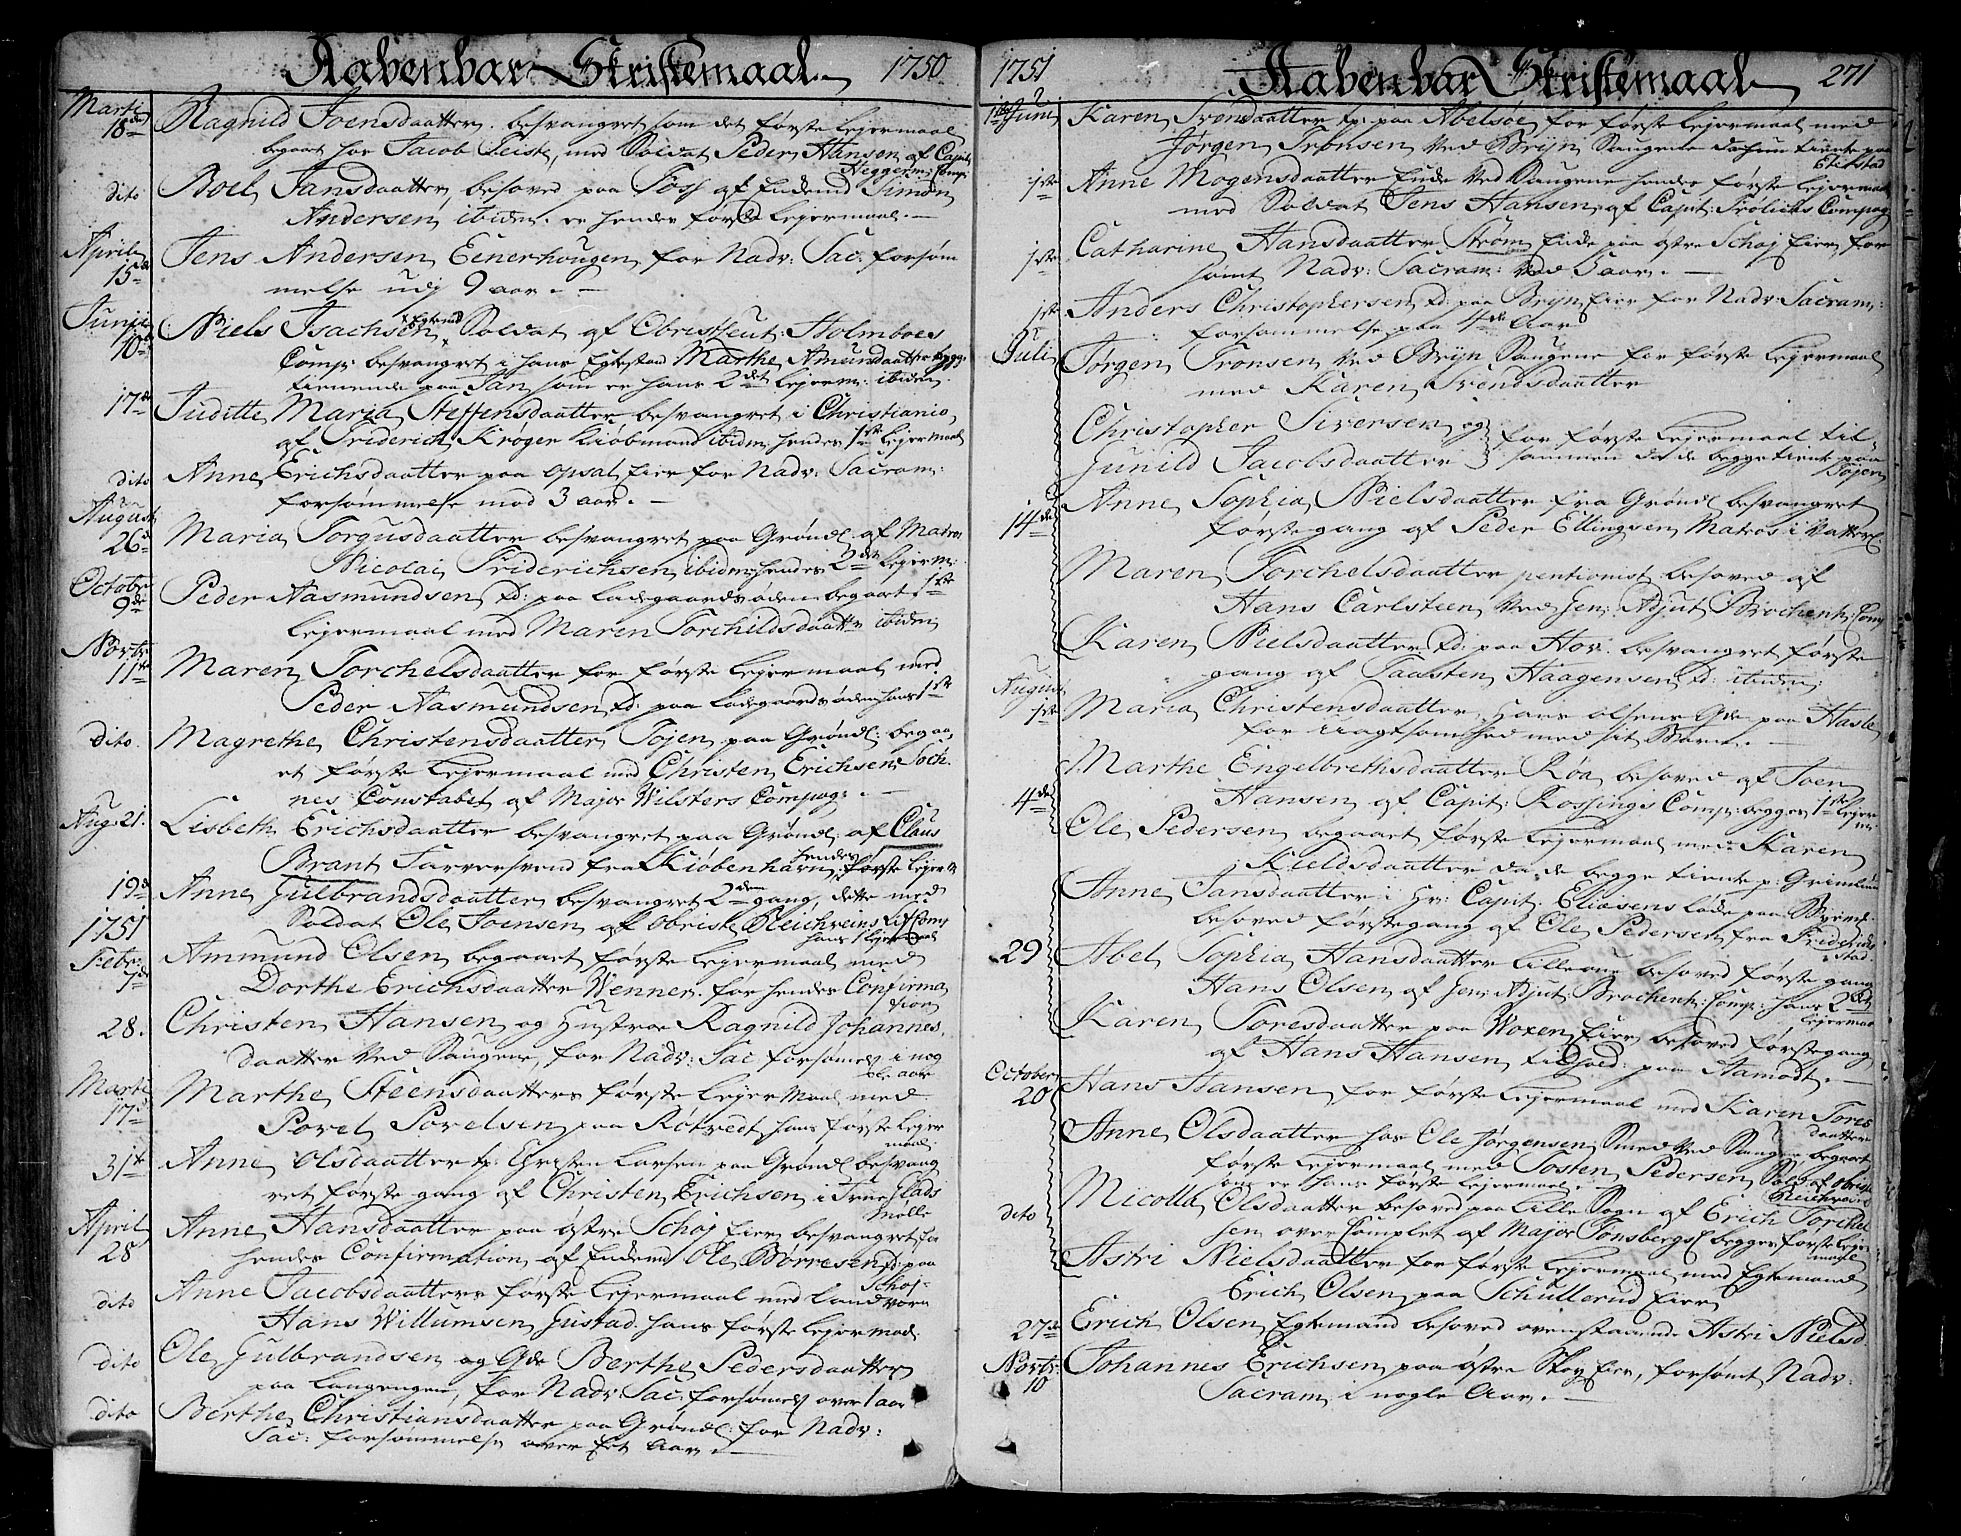 Aabenbar Skriftemaal 1750
Marti 18de Ragnild Joensdaatter besvangret som det første Lejermaal
begaaet hos Jacob Feiste, med Soldat Peder Hansen af Capit
Heggerm: Comp:
dito Boel Jansdaatter, besoved paa af Enkemd Simon
Andersen ibidem er hendes første Lejermaal.
April 15de Jens Andersen Eenerhougen for Nadv: Sac. forsøm
melse udj 9 aar.
Junii 10de Niels Isachsen Soldat af Obristleut: Holmboes
Comp: besvangret i hans Egtestad Marthe Amundsdaatter
tienende paa som er hans 2det Lejerm: ibidem.
17de Juditte Maria Steffensdaatter besvangret i Christiania
af Friderich Krøger Kiøbmand ibidem hendes 1ste Lejermaal
dito Anne Erichsdaatter paa Opsal Eier for Nadv: Sacram:
forsømmelse mod 3 aar.
August 26de Maria Torgusdaatter besvangret paa Grønl. af Matros
Nicolai Friderichsen ibidem hendes 2den Lejerm:
Octobr 9de Peder Aasmundsen td: paa Ladegaardsøden begaaet 1ste
Lejermaal med Maren Torchildsdaattr ibidem
Novbr 11te Maren Torchelsdaatter for første Lejermaal med
Peder Aasmundsen td: paa Ladegaardsøden hans 1ste
dito. Magrethe Christensdaatter Tojen paa Grønl: begaa,
et første Lejermaal med Christen Erichsen
Constabel af Major Wilsters Compag:
Aug: 21. Lisbeth Erichsdaatter besvangret paa Grønl. af Claus
Brant Farversvend fra Kiøbenhavn, hendes første Lejerm
19de Anne Gulbrandsdaatter besvangret 2den gang, dette med
Soldat Ole Joensen af Obrist Bleichneins Lif Comp
hans 1 Lejermaal
1751
Febr. 7de Ammund Olsen begaaet første Lejermaal med
Dorthe Erichsdaatter Wenner for hendes Confirma
tion
28. Christen Hansen og Hustroe Ragnild Johannes,
daatter Ved Saugene, for Nadv: Sac forsømels i nog
ele aar
Marti 17de Marthe Steensdaatters første Lejer Maal med
Povel Povelsen paa Røtvedt, hans første Lejer
maal.
31te Anne Olsdaatter tp: Christen Larsen paa Grønl besvang
ret første gang af Christen Erichsen i
Mølle
April 28 Anne Hansdaatter paa østre Schoj Eier besvangret før
hendes Confirmation af Enkemd Ole Børresen td: paa
Schoj.
dito Anne Jacobsdaatters første Lejermaal med Landvorn
Hans Willumsen Gustad hans første Lejermaal.
dito Ole Gulbrandsen og Qde Berthe Pedersdaatter
paa Langengen, for Nadv: Sac: forsømels over 1 aar
dito Berthe Christiansdaatter paa Grønl. for Nadv:
Sac: forsømmelse over Et Aar.
1751 Aabenbar Skriftemaal 271
Juni Karen Svendsdaatter tp: paa Abelsøe for første Lejermaal med
Jørgen Tronsen Ved Bryn Saugene da hun tiente paa
1ste Anne Mogensdaatter Enke Ved Saugene hendes første Lejermaal
med Soldat Jens Hansen af Capit: Frolichs Compag
1ste Catharine Hansdaatter Strøm Enke paa østre Schoj Eier for
sømt Nadv: Sacram: Ved 5 aar.
1ste Anders Christophersen td: paa Bryn Eier for Nadv: Sacram:
forsømmelse paa 4de Aar
Juli Jørgen Tronsen Ved Bryn Saugene for første Lejermaal
med Karen Svendsdaatter
Christopher Siversen og } for første Lejermaal til,
Gunild Jacobsdaatter } sammen da de begge tient paa
Bøjen
14de Anne Sophia Nielsdaatter fra Grønl besvangret
første gang af Peder Ellingsen Matros i
Maren Torchelsdaatter pentionist besoved af
Hans Carlsteen Ved Gen: Adjut Brochenh: Comp
Karen Nielsdaatter td: paa Hov. besvangret første
gang af Taasten Haagensen td: ibidem
August 1ste Maria Christensdaatter, Hans Olsens Qde paa Hasle
for Uagtsomhed med sit Barn.
Marthe Engelbrethsdaatter Røa besoved af Joen
4de Hansen af Capit: Rossings Comp: begges 1ste Lejer
m:
Ole Pedersen begaaet første Lejermaal med Karen
Kieldsdaatter da de begge tiente p: Grimlund
Anne Jansdaatter i Hr: Capit. Eliæsens løke paa
besoved første gang af Ole Pedersen fra Friderich
stad.
29 Abel Sophia Hansdaatter Lilleaue besoved første gang
Hans Olsen af Gen: Adjut Brochenh: Comp: hans 2det
Lejermaal
Karen Toresdaatter paa Woxen Eier besoved første gang
af Hans Hansen tilhold: paa Aamodt.
October 20 Hans Hansen for første Lejermaal med Karen Tores
daatter
Anne Olsdaatter hos Ole Jørgensen Smed Ved Saugen, begaaet
første Lejermaal med Tosten Pedersen Sold: af Obrist
som er hans første Lejermaal. Bleichnein
dito Nicolla Olsdaatter besoved paa Lille Sogn af Erich Torchel
sen over Complet af Major Tonsbergs begges første Lejer
maal
Astri Nielsdaatter for første Lejermaal med Egtemand
Erich Olsen paa Schullerud Eier
27de Erich Olsen Egtemand besoved ovenstaaende Astri Nielsd.
Novbr: 10 Johannes Erichsen paa østre Skoy Eier, forsømt Nadv:
Sacram, i nogle Aar.